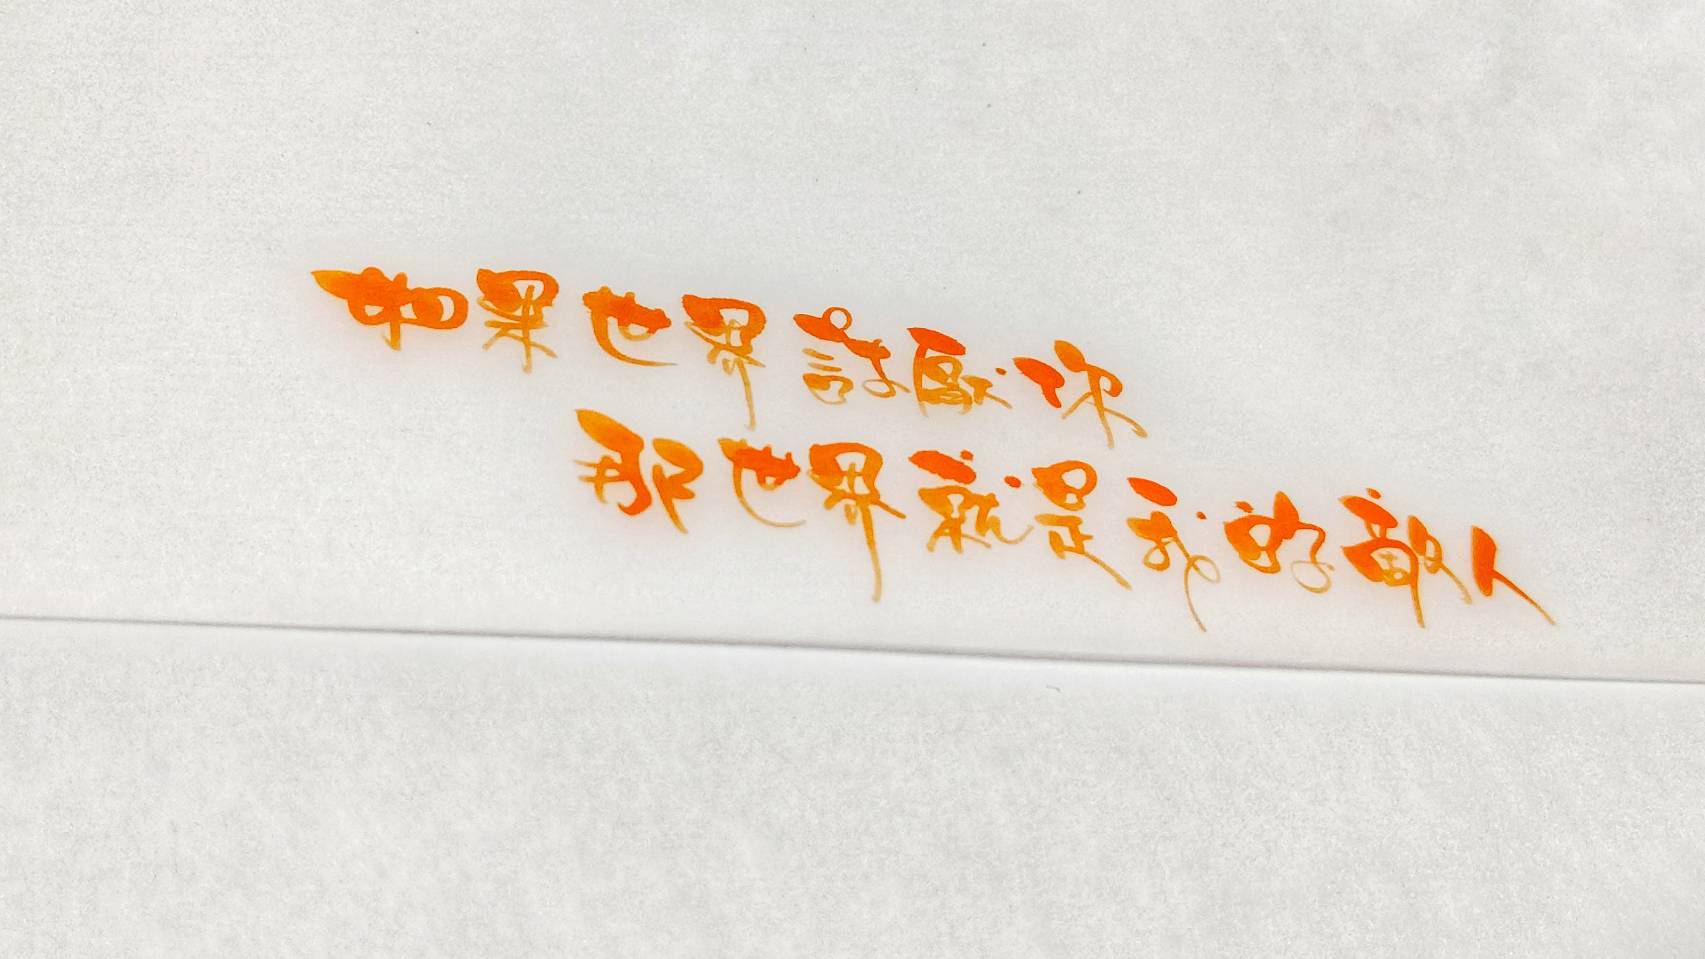 如果世界討厭你
那世界就是我的敵人